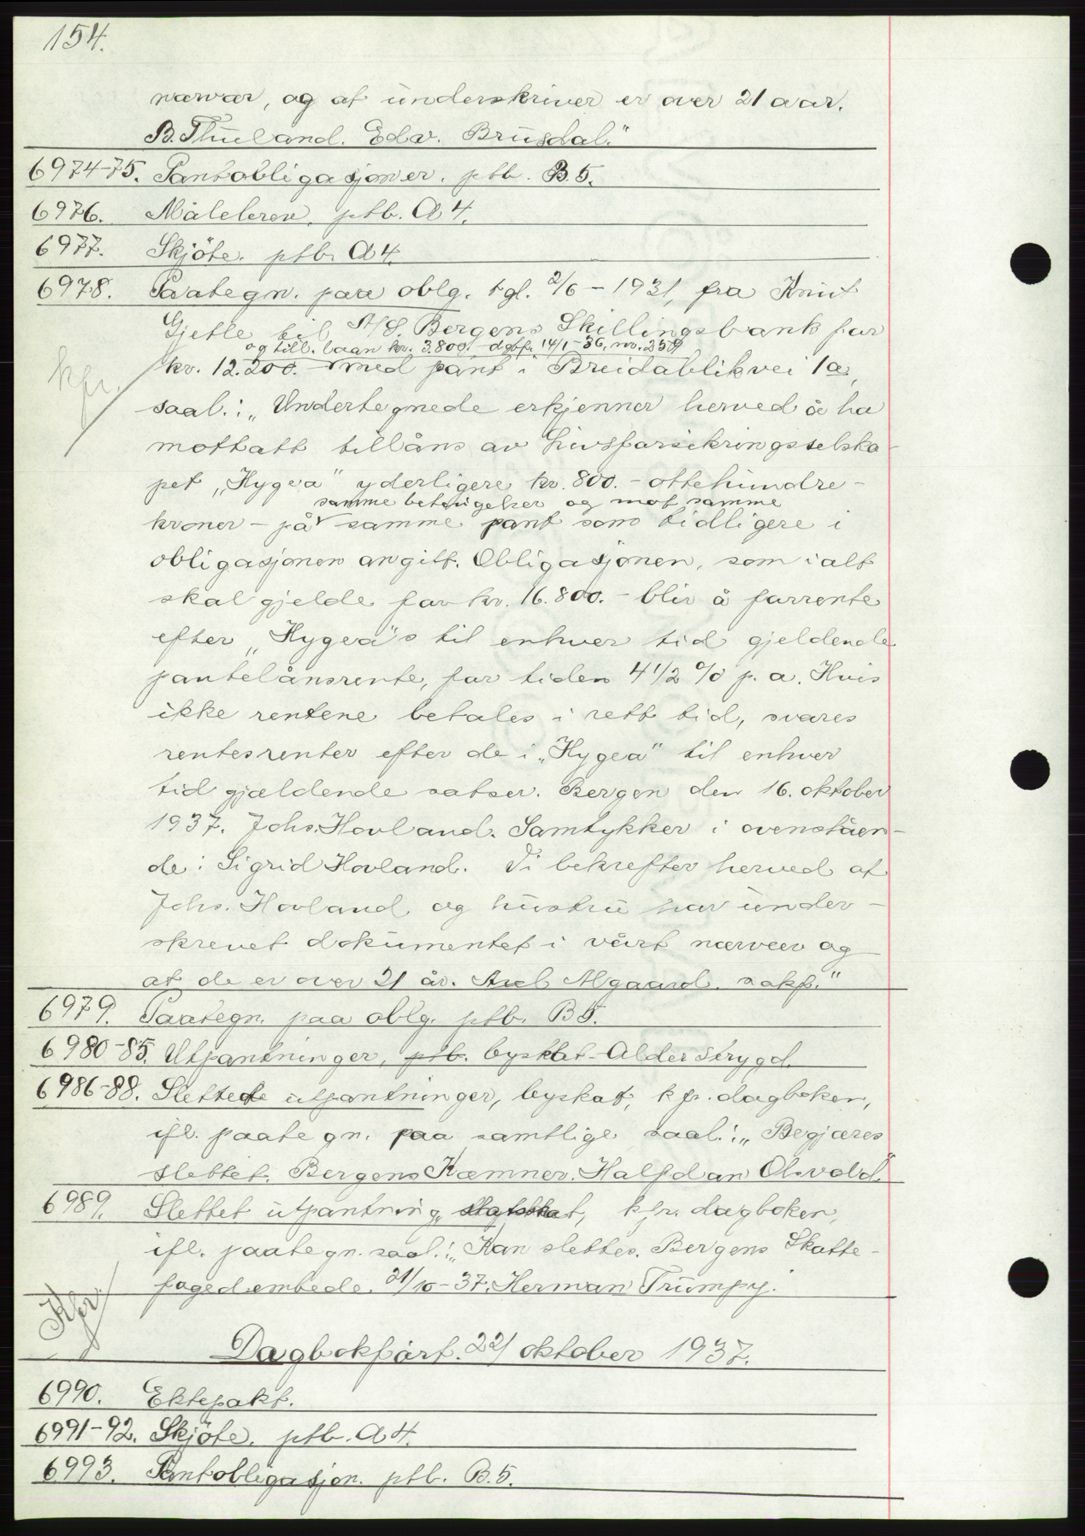 154.
nærvær, og at underskriver er over 21 aar.
B. Thueland. Edv. Brusdal."
6974-75. Pantobligasjoner. ptb. B.5.
6976. Målebrev. ptb. A 4.
6977. Skjöte. ptb. A 4.
6978. Paategn. paa oblg. tgl. 2/6 - 1931, fra Knut
Gjetle til A/S. Bergens Skillingsbank for
og till. laan kr. 3.800.- dgbf. 14/1-36, nr. 259
kfr. kr. 12.200.- med pant i Breidablikvei 1a,
saal.: „Undertegnede erkjenner herved å ha
mottatt tillåns av Livsforsikringsselska-
pet „Hygea" yderligere kr. 800.- ottehundre-
samme betingelser og mot samme
kroner - på samme pant som tidligere i
obligasjonen angitt. Obligasjonen, som i alt
skal gjelde for kr. 16.800.- blir å forrente
efter „Hygea"s til enhver tid gjeldende
pantelånsrente, for tiden 4 1/2 % p. a. Hvis
ikke rentene betales i rett tid, svares
rentesrenter efter de i „Hygea" til enhver
tid gjældende satser. Bergen den 16. oktober
1937. Johs. Hovland. Samtykker i ovenståen-
de: Sigrid Hovland. Vi bekrefter herved at
Johs. Hovland og hustru har under-
skrevet dokumentet i vårt nærvær og
at de er over 21 år. Axel Algaard. sakf."
6979. Paategn. paa oblg. ptb. B 5.
6980-85. Utpantninger, ptb. byskat - Alderstrygd.
6986-88. Slettede utpantninger, byskat, kfr. dagboken,
ifl. paategn. paa samtlige saal.: „Begjæres
slettet. Bergens Kæmner. Halfdan Olsvold."
6989. Slettet utpantning, kfr. dagboken,
ifl. paategn. saal.: „Kan slettes. Bergens Skatte-
fogedembede. 21/10-37. Herman Trümpy."
Kfr.
Dagbokført. 22/ oktober 1937.
6990. Ektepakt.
6991-92. Skjöte. ptb. A 4.
6993. Pantobligasjon. ptb. B.5.